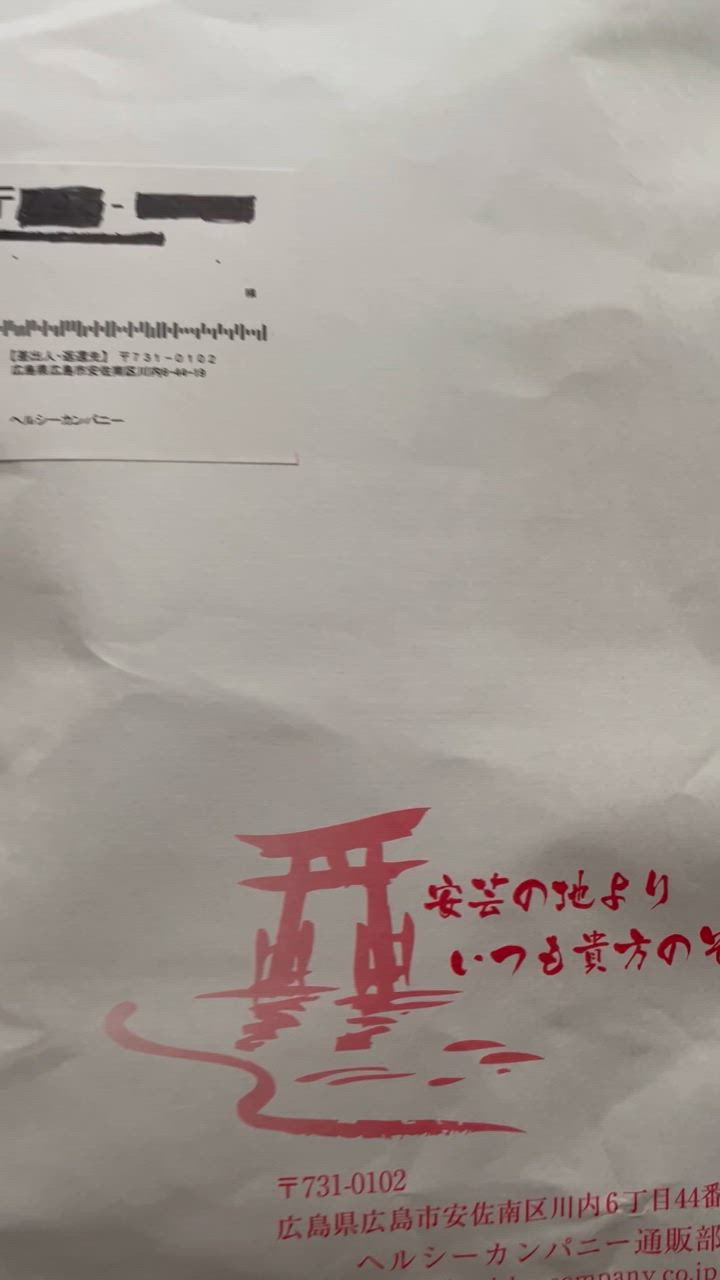 〒 -
様
【差出人・返還先】 〒731-0102
広島県広島市安佐南区川内6-44-19
ヘルシーカンパニー
安芸の地より
いつも貴方の
〒731-0102
広島県広島市安佐南区川内6丁目44番
ヘルシーカンパニー通販部
company.co.jp